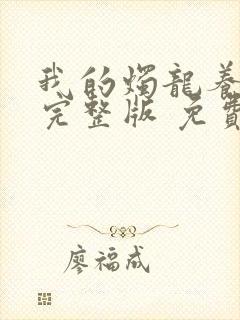 我的燭龍養
完整版 免費
廖福成